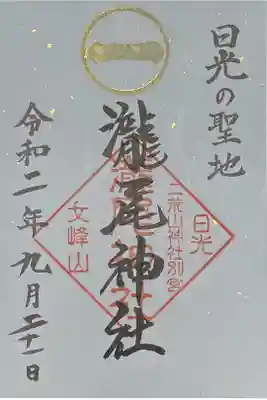 日光の聖地
瀧尾神社
令和二年九月二十一日
日光
二荒山神社別宮
女峰山